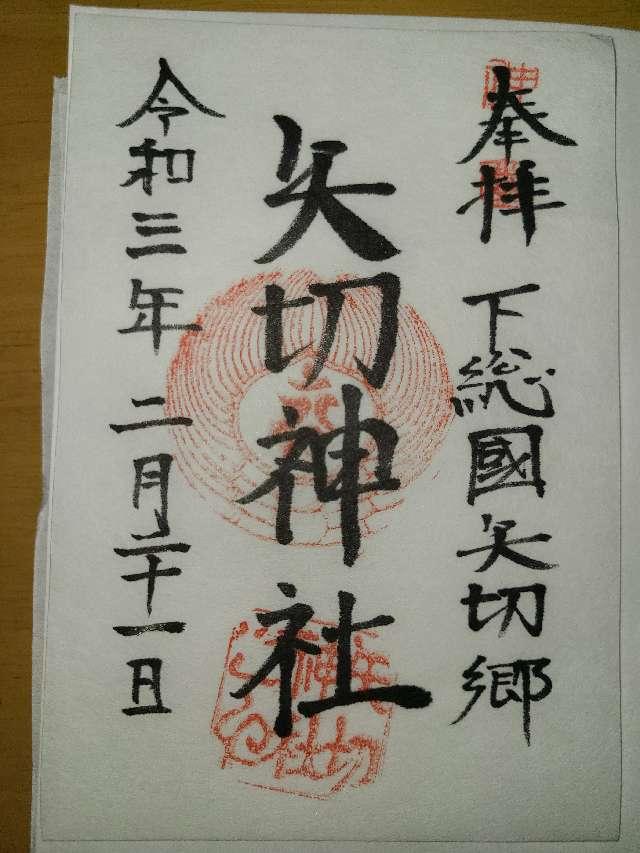 奉拝 下総國矢切郷
矢切神社
令和三年二月二十一日